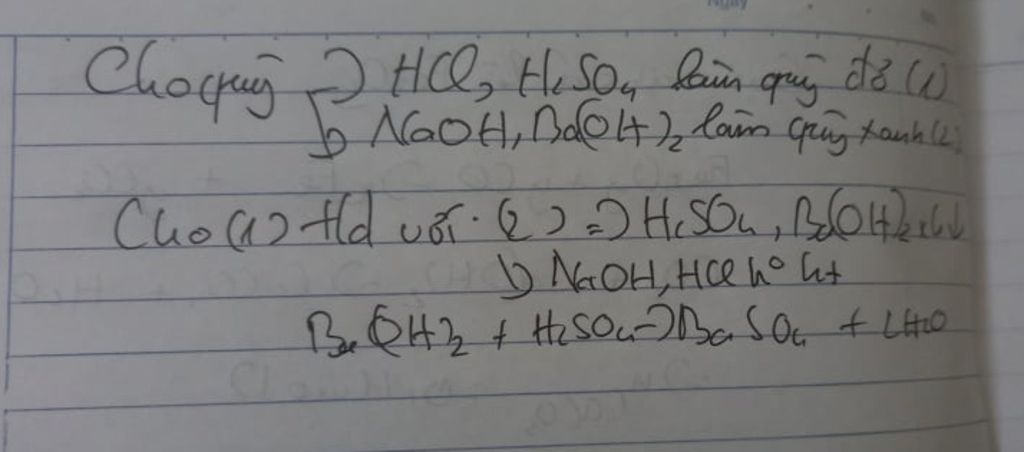 Cho quỳ → HCl, H2SO4 làm quỳ đỏ (1)
↳ NaOH, Ba(OH)2 làm quỳ xanh (2)
Cho (1) td với (2) => H2SO4, Ba(OH)2
↳ NaOH, HCl ko ht
Ba(OH)2 + H2SO4 → BaSO4 + 2H2O